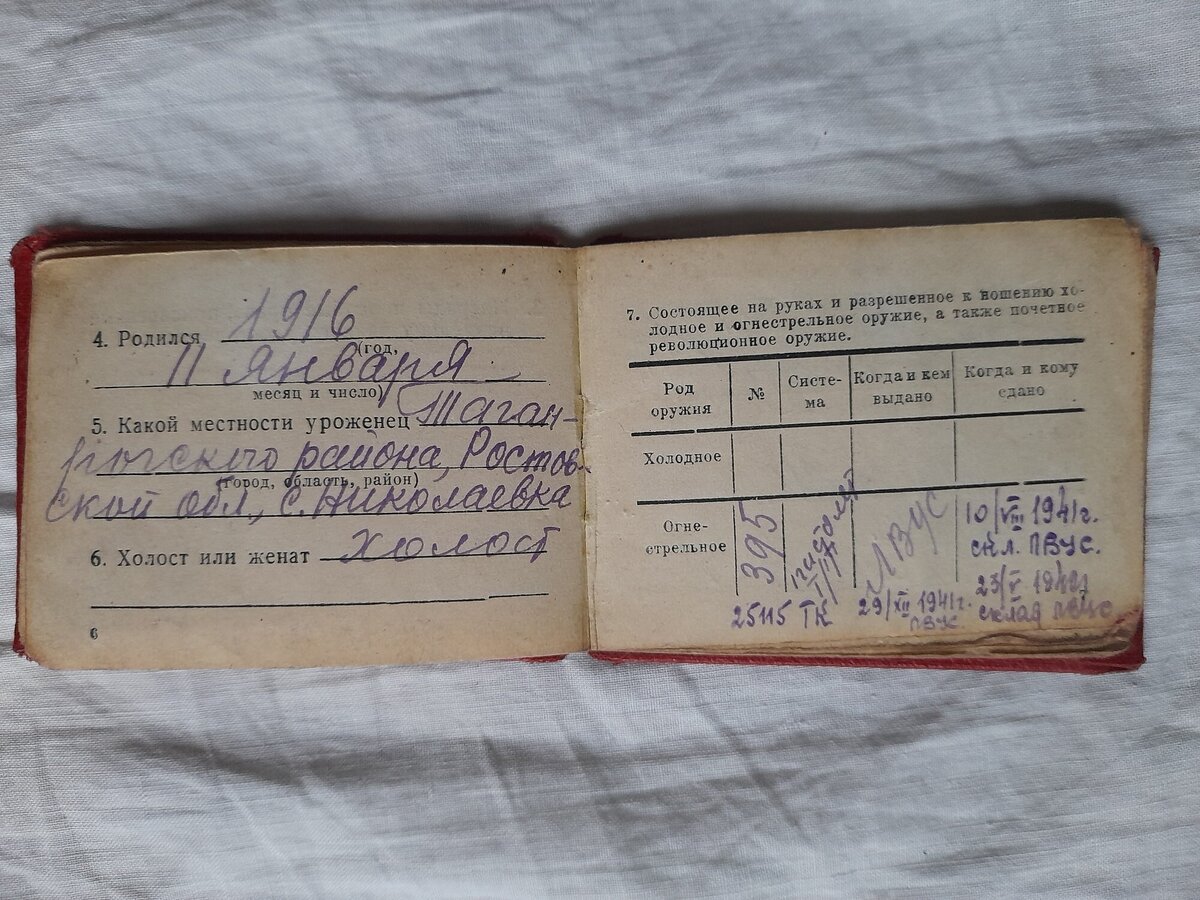 4. Родился 1916
(год,
11 января
месяц и число)
5. Какой местности уроженец Таган-
рогского района, Ростов-
(город, область, район)
ской обл., с. Николаевка
6. Холост или женат холост
6
7. Состоящее на руках и разрешенное к ношению хо-
лодное и огнестрельное оружие, а также почетное
революционное оружие.
Род оружия
№
Систе-
ма
Когда и кем
выдано
Когда и кому
сдано
Холодное
Огне-
стрельное
395
ЛВУС
10/VIII 1941г.
скл. ЛВУС.
25115 ТК
29/XII 1941г.
ЛВУС.
23/V
склад ЛВУС